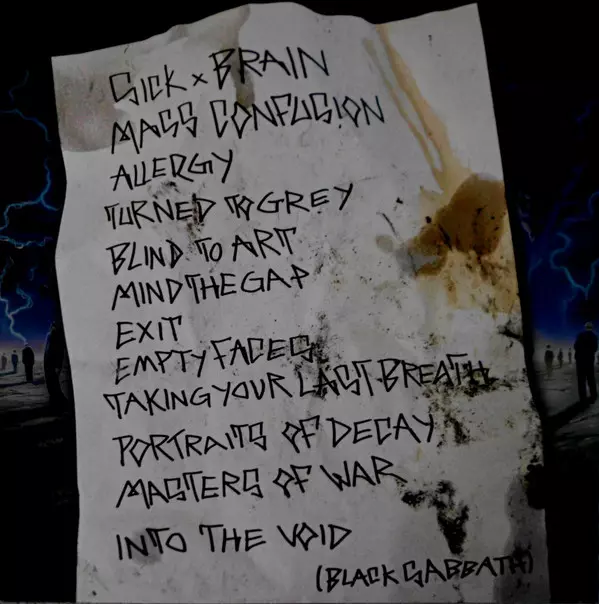 SICK x BRAIN
MASS CONFUSION
ALLERGY
TURNED TO GREY
BLIND TO ART
MIND THE GAP
EXIT
EMPTY FACES
TAKING YOUR LAST BREATH
PORTRAITS OF DECAY
MASTERS OF WAR
INTO THE VOID
(BLACK SABBATH)